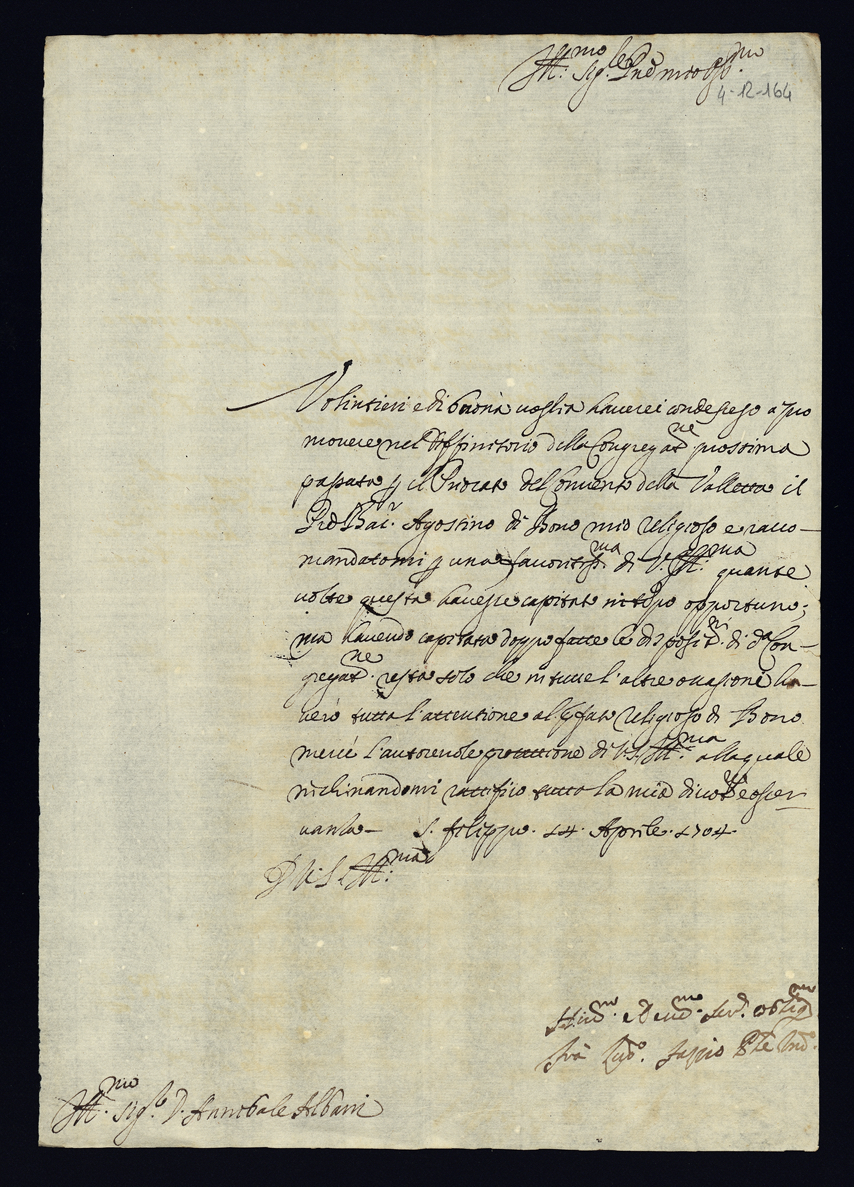 Ill.mo Sig.re Pad
4-12-164
Volintieri e di buona voglia haverei condesceso a pro
movere nel diffinitorio della Congregat.ne prossima
passata p il Priorato del Convento della Valletta il
Bac.r Agostino di Bono mio religioso e racco-
mandatomi p una favoritiss.ma di V. Ill.ma quante
volte questa havesse capitato in tpo opportuno;
ma havendo capitata doppo fatte le disposit.ni di d.a Con-
gregat.ne resta solo che in tutte l'altre occasioni ha-
verò tutta l'attentione al religioso di Bono
mercé l'autorevole protettione di V.S. Ill.ma alla quale
inchinandomi ratifico tutta la mia divot.ne e osser
vanza- S. Filippo. 14. Aprile. 1704.
D V.S. Ill.ma
e Serv. oblig
Frà
Ill.mo Sig.re D. Annibale Albani